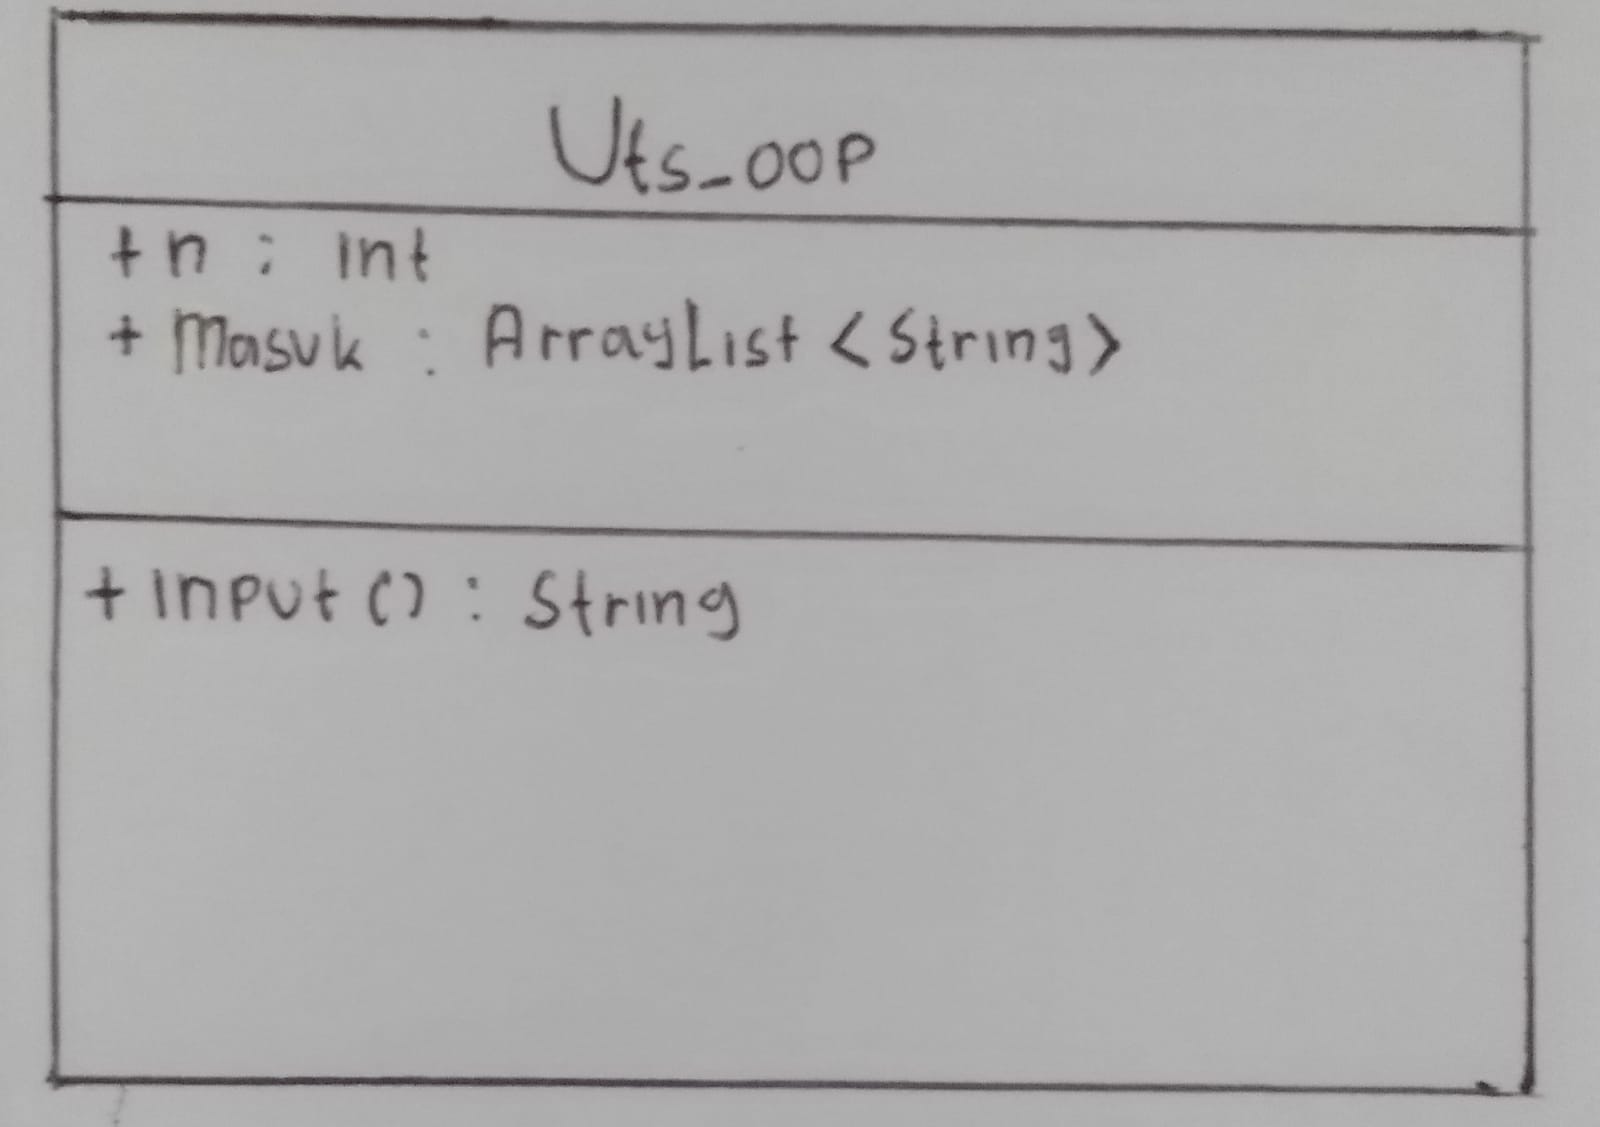 Uts_oop
+ n : int
+ Masuk : ArrayList <String>
+ Input () : String